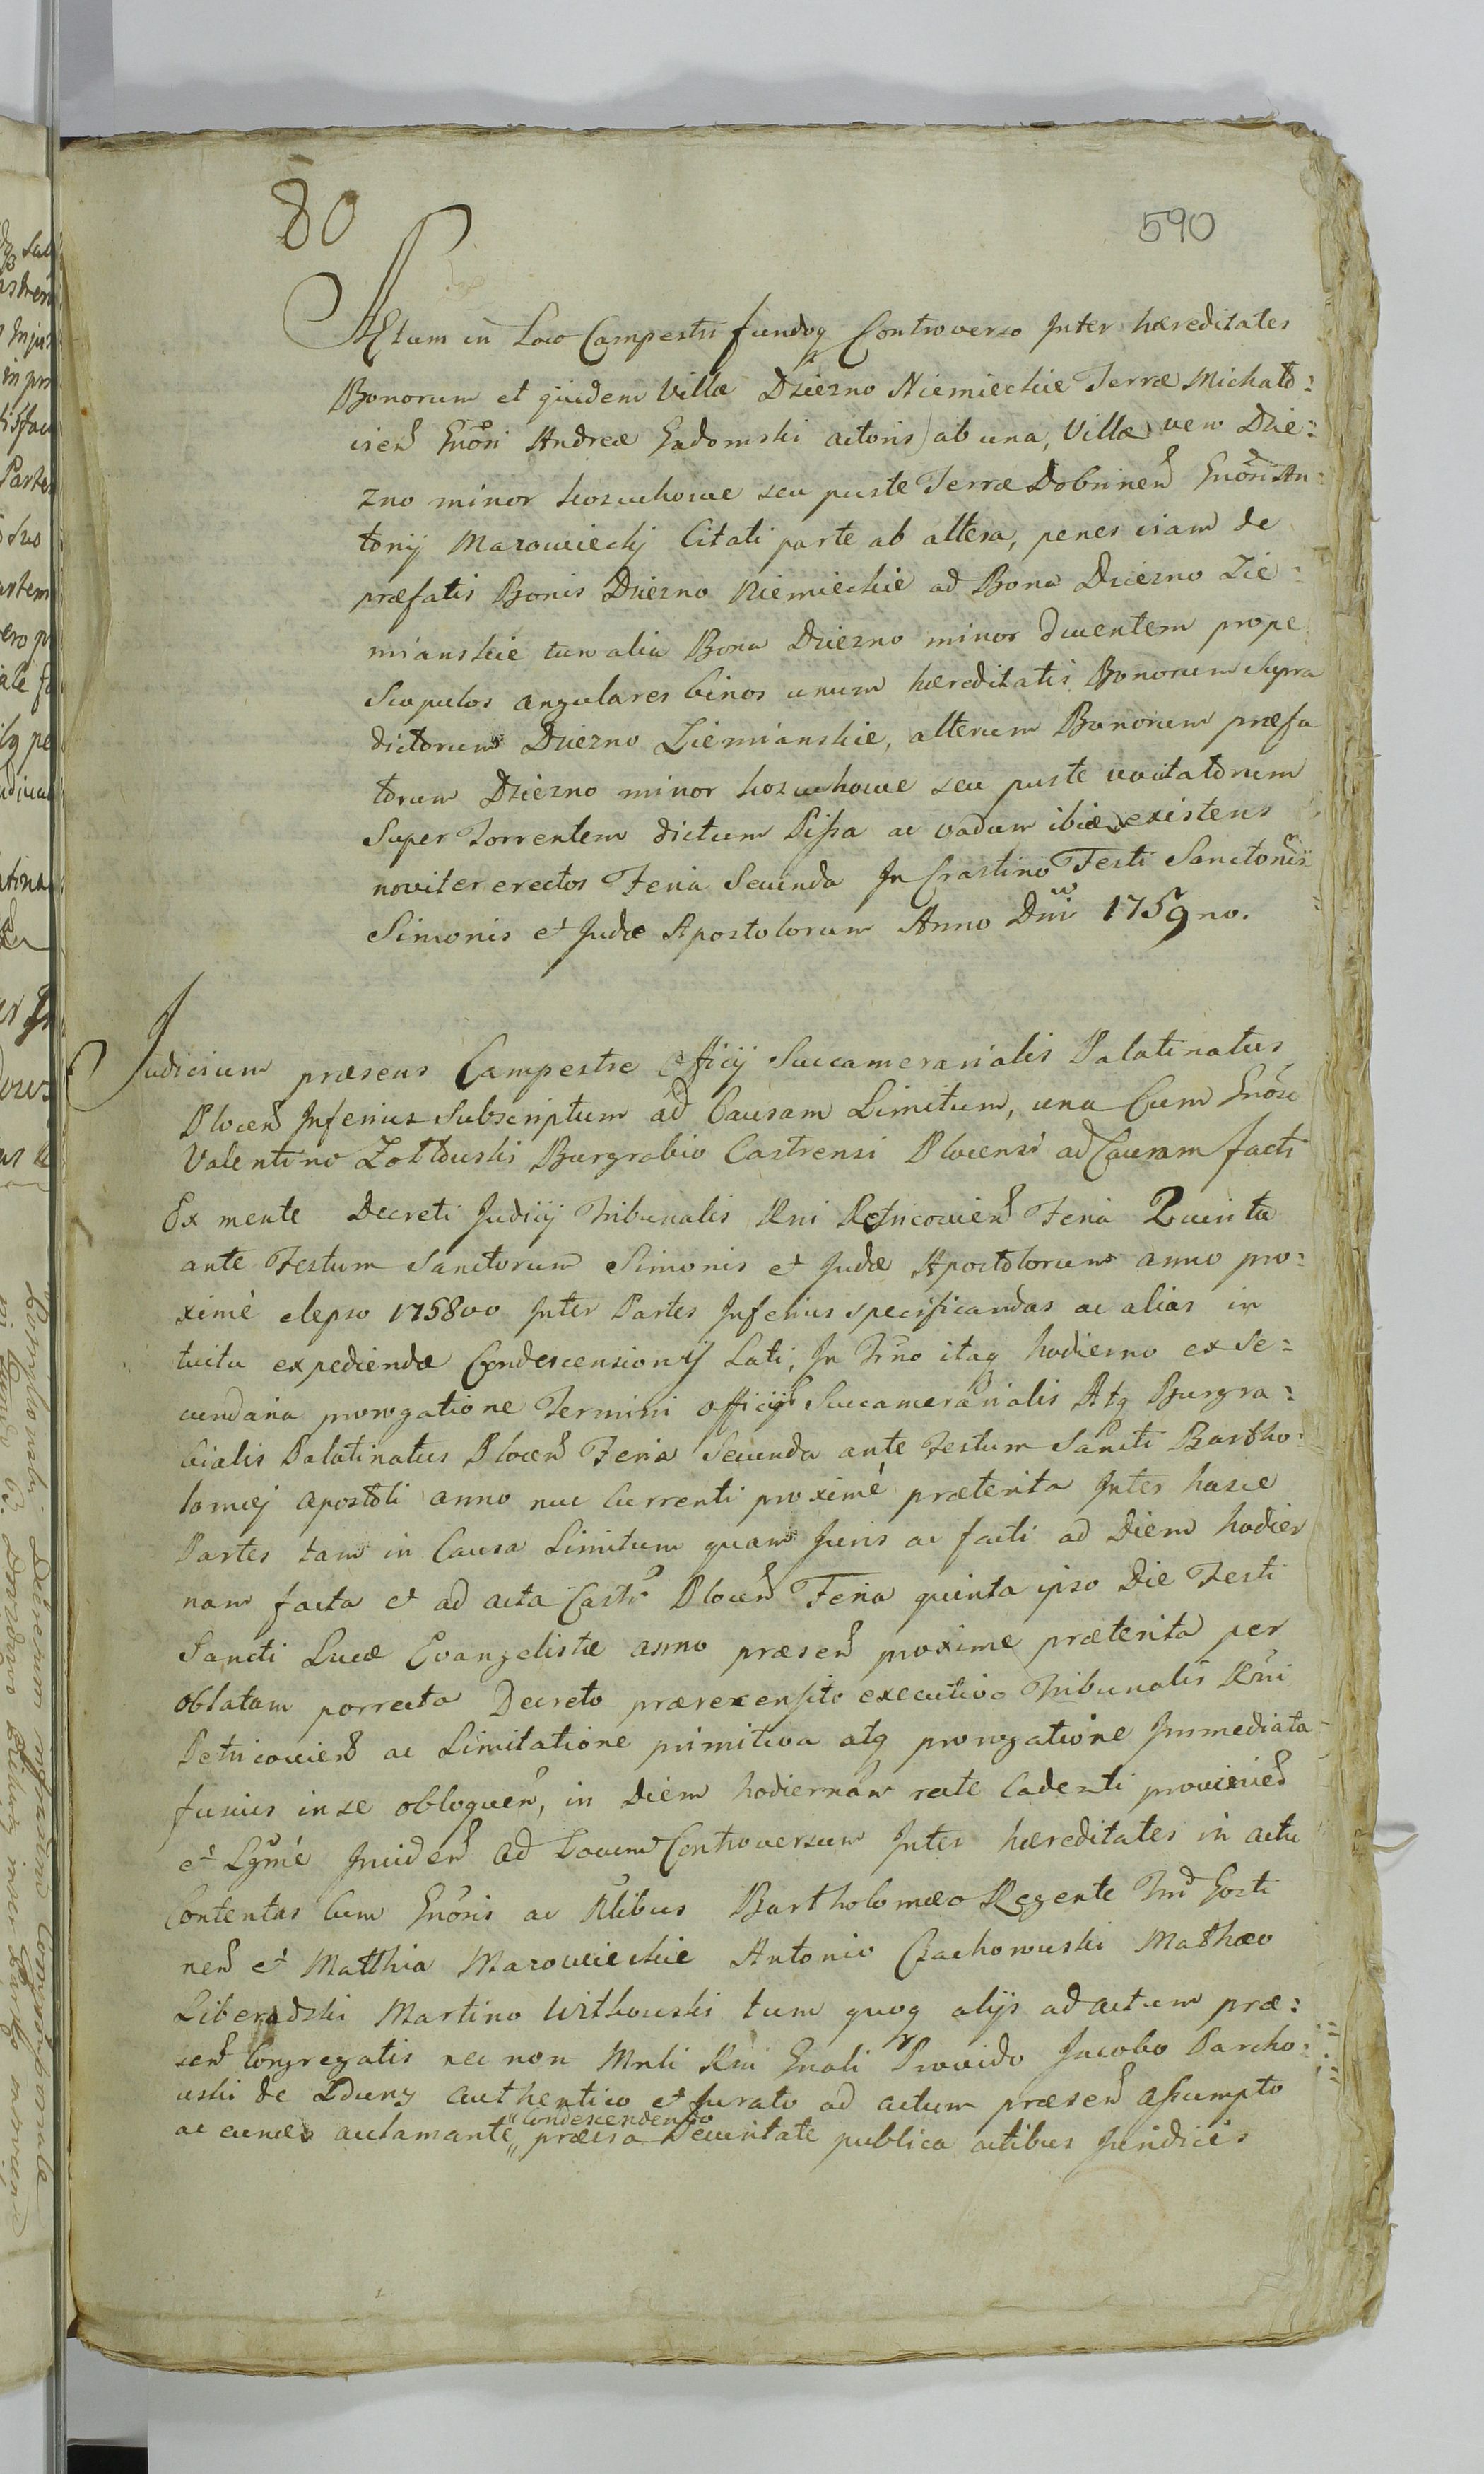 80
590
Actum in Loco Campestri fundoq Controverso Inter hæreditates
Bonorum et quidem Villæ Dziezno Niemieckie Terræ Michało=
vien Gnosi Andreæ Gadomski actoris ab una, Villæ vero Dzie=
zno minor koscuchowe seu puste Terræ Dobrinen Gnosi An=
tonij Mazowieckj Citati parte ab altera, penes viam de
præfatis Bonis Dziezno Niemieckie ad Bona Dziezno Zie=
mianskie tum alia Bona Dziezno minor ducentem prope
Scopulos angulares binos unum hæreditatis Bonorum Supra
dictorum Dziezno Ziemianskie, alterum Bonorum præfa
torum Dziezno minor koscuchowe seu puste vocitatorum
Super Torrentem dictum Pissa ac vadum ibidem existens
noviter erectos Feria Secunda In Crastino Festi Sanctorum
Simonis et Judæ Apostolorum Anno Dni 1759no.
Judicium præsens Campestre Officij Succamerarialis Palatinatus
Plocen Inferius Subscriptum ad Causam Limitum, una Cum Gnoso
Valentino Zołtowski Burgrabio Castrensi Plocensi ad Causam facti
Ex mente Decreti Judicij Tribunalis Rni Petricovien Feria Quinta
ante Festum Sanctorum Simonis et Judæ Apostolorum anno pro=
ximè elepso 1758vo Inter Partes Inferius specificandas ac alias in
tuitu expediendæ Condescensionis Lati, In Trno itaq hodierno ex Se=
cundaria prorogatione Termini officij Succamerarialis Atq Burgra=
bialis Palatinatus Plocen Feria Secunda ante Festum Sancti Bartho=
lomæj Apostoli anno nuc Currenti proximè præterita Inter hasce
Partes tam in Causa Limitum quam Juris ac facti ad Diem hodier
nam facta et ad acta Castr Plocen Feria quinta ipso Die Festi
Sancti Lucæ Evangelistæ anno præsen proxime præterita per
oblatam porrecta Decreto præexensito executivo Tribunalis Rni
Petricovien ac Limitatione primitiva atq prorogatione Immediata
fusius in se obloquen, in Diem hodiernam recte Cadenti provenien
et Lgmè Inciden ad Locum Controversum Inter hæreditates in actu
Contentas Cum Gnosis ac Nlibus Bartholomæo Regente Trd Gosti
nen et Matthia Mazowieckie Antonio Czachowski Mathæo
Liberadzki Martino Witkowski tum quoq alijs ad actum præ=
sen Congregatis nec non Mnli Rni Gnali Provido Jacobo Parcho=
wski de Lduny authentico et Jurato ad actum præsen assumpto
ac eundem aclamante " Condescendendo
" prævia Securitate publica actibus Juridicis